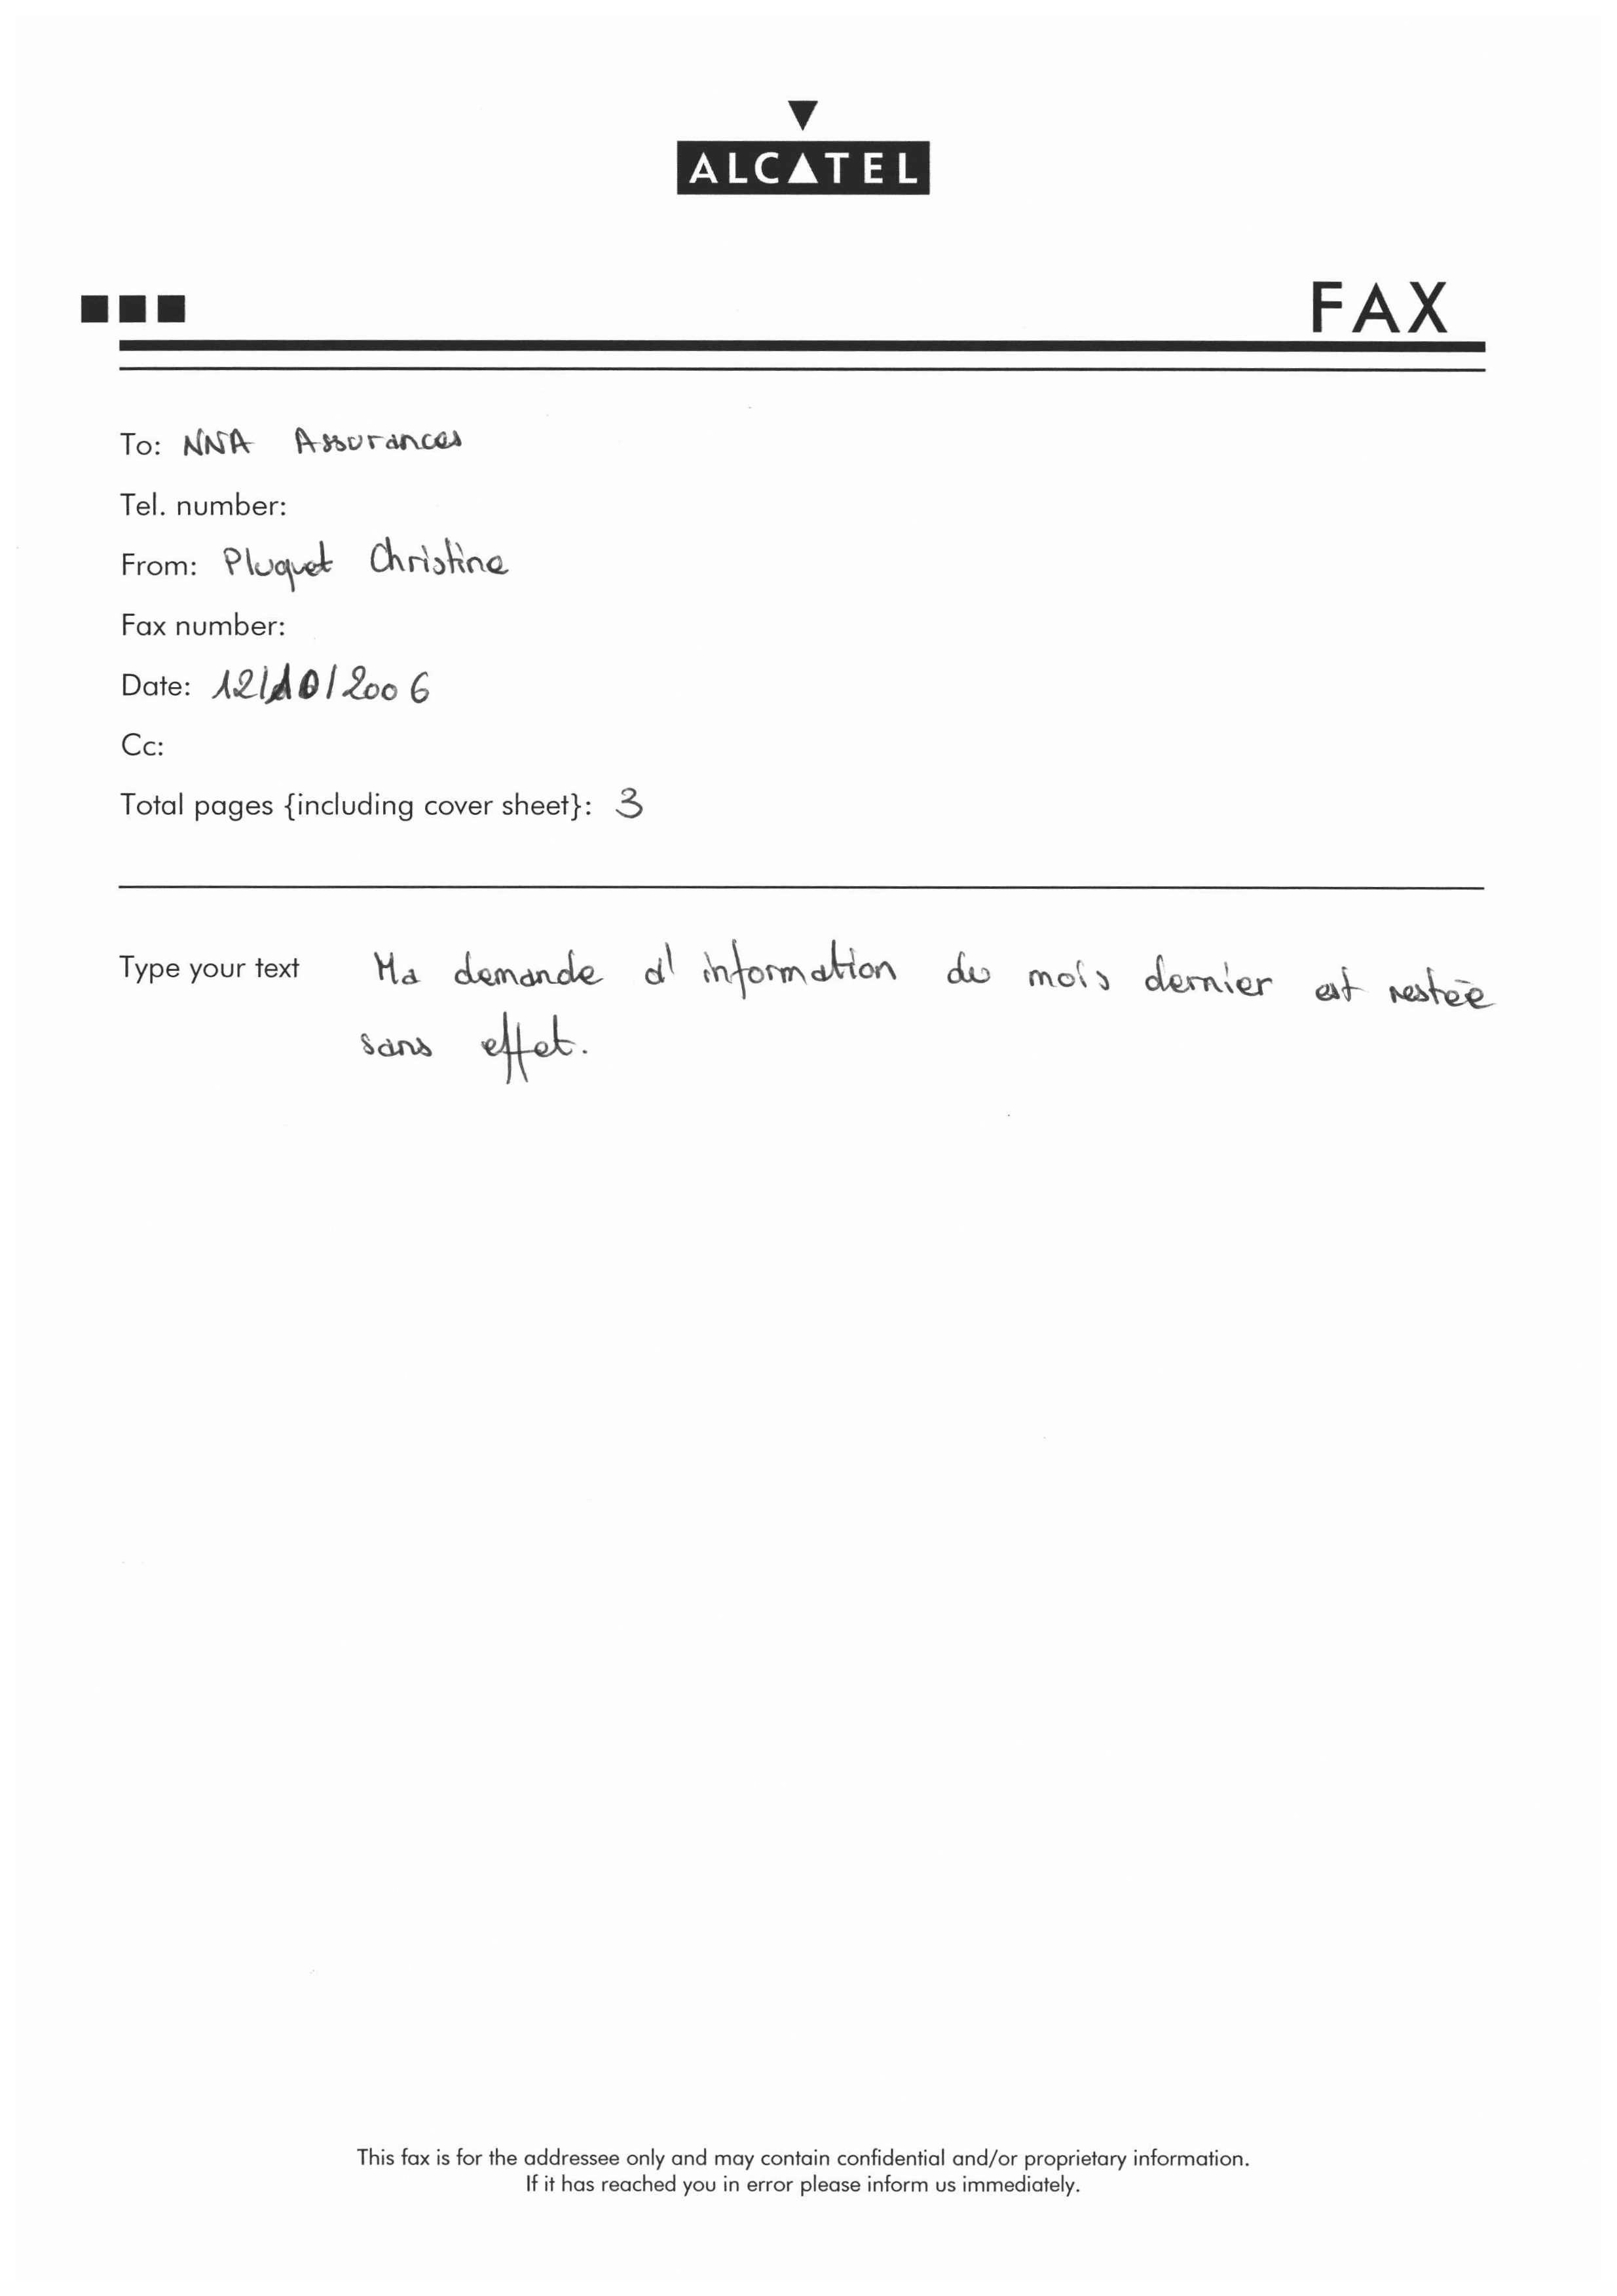 ALCATEL
FAX
To: NNA Assurances
Tel. number:
From: Pluquet Christine
Fax number:
Date: 12/10/2006
Cc:
Total pages {including cover sheet}: 3
Type your text Ma demande d'information du mois dernier est restée
sans effet.
This fax is for the addressee only and may contain confidential and/or proprietary information.
If it has reached you in error please inform us immediately.